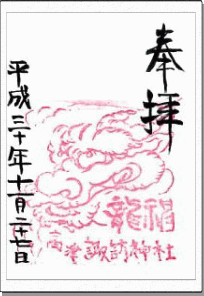 奉拝
龍神
諏訪神社
平成三十年十一月二十七日